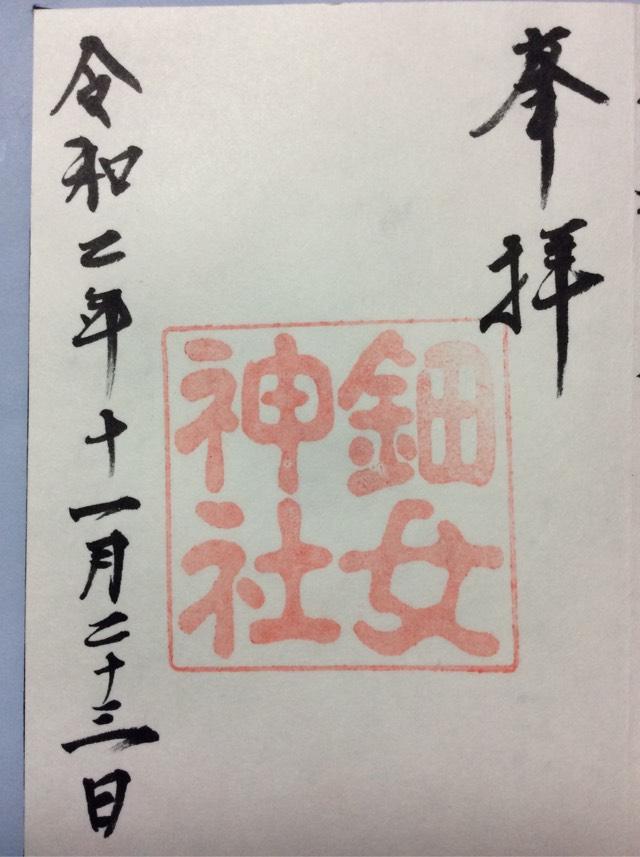 奉拝
鈿女
神社
令和二年十一月二十三日